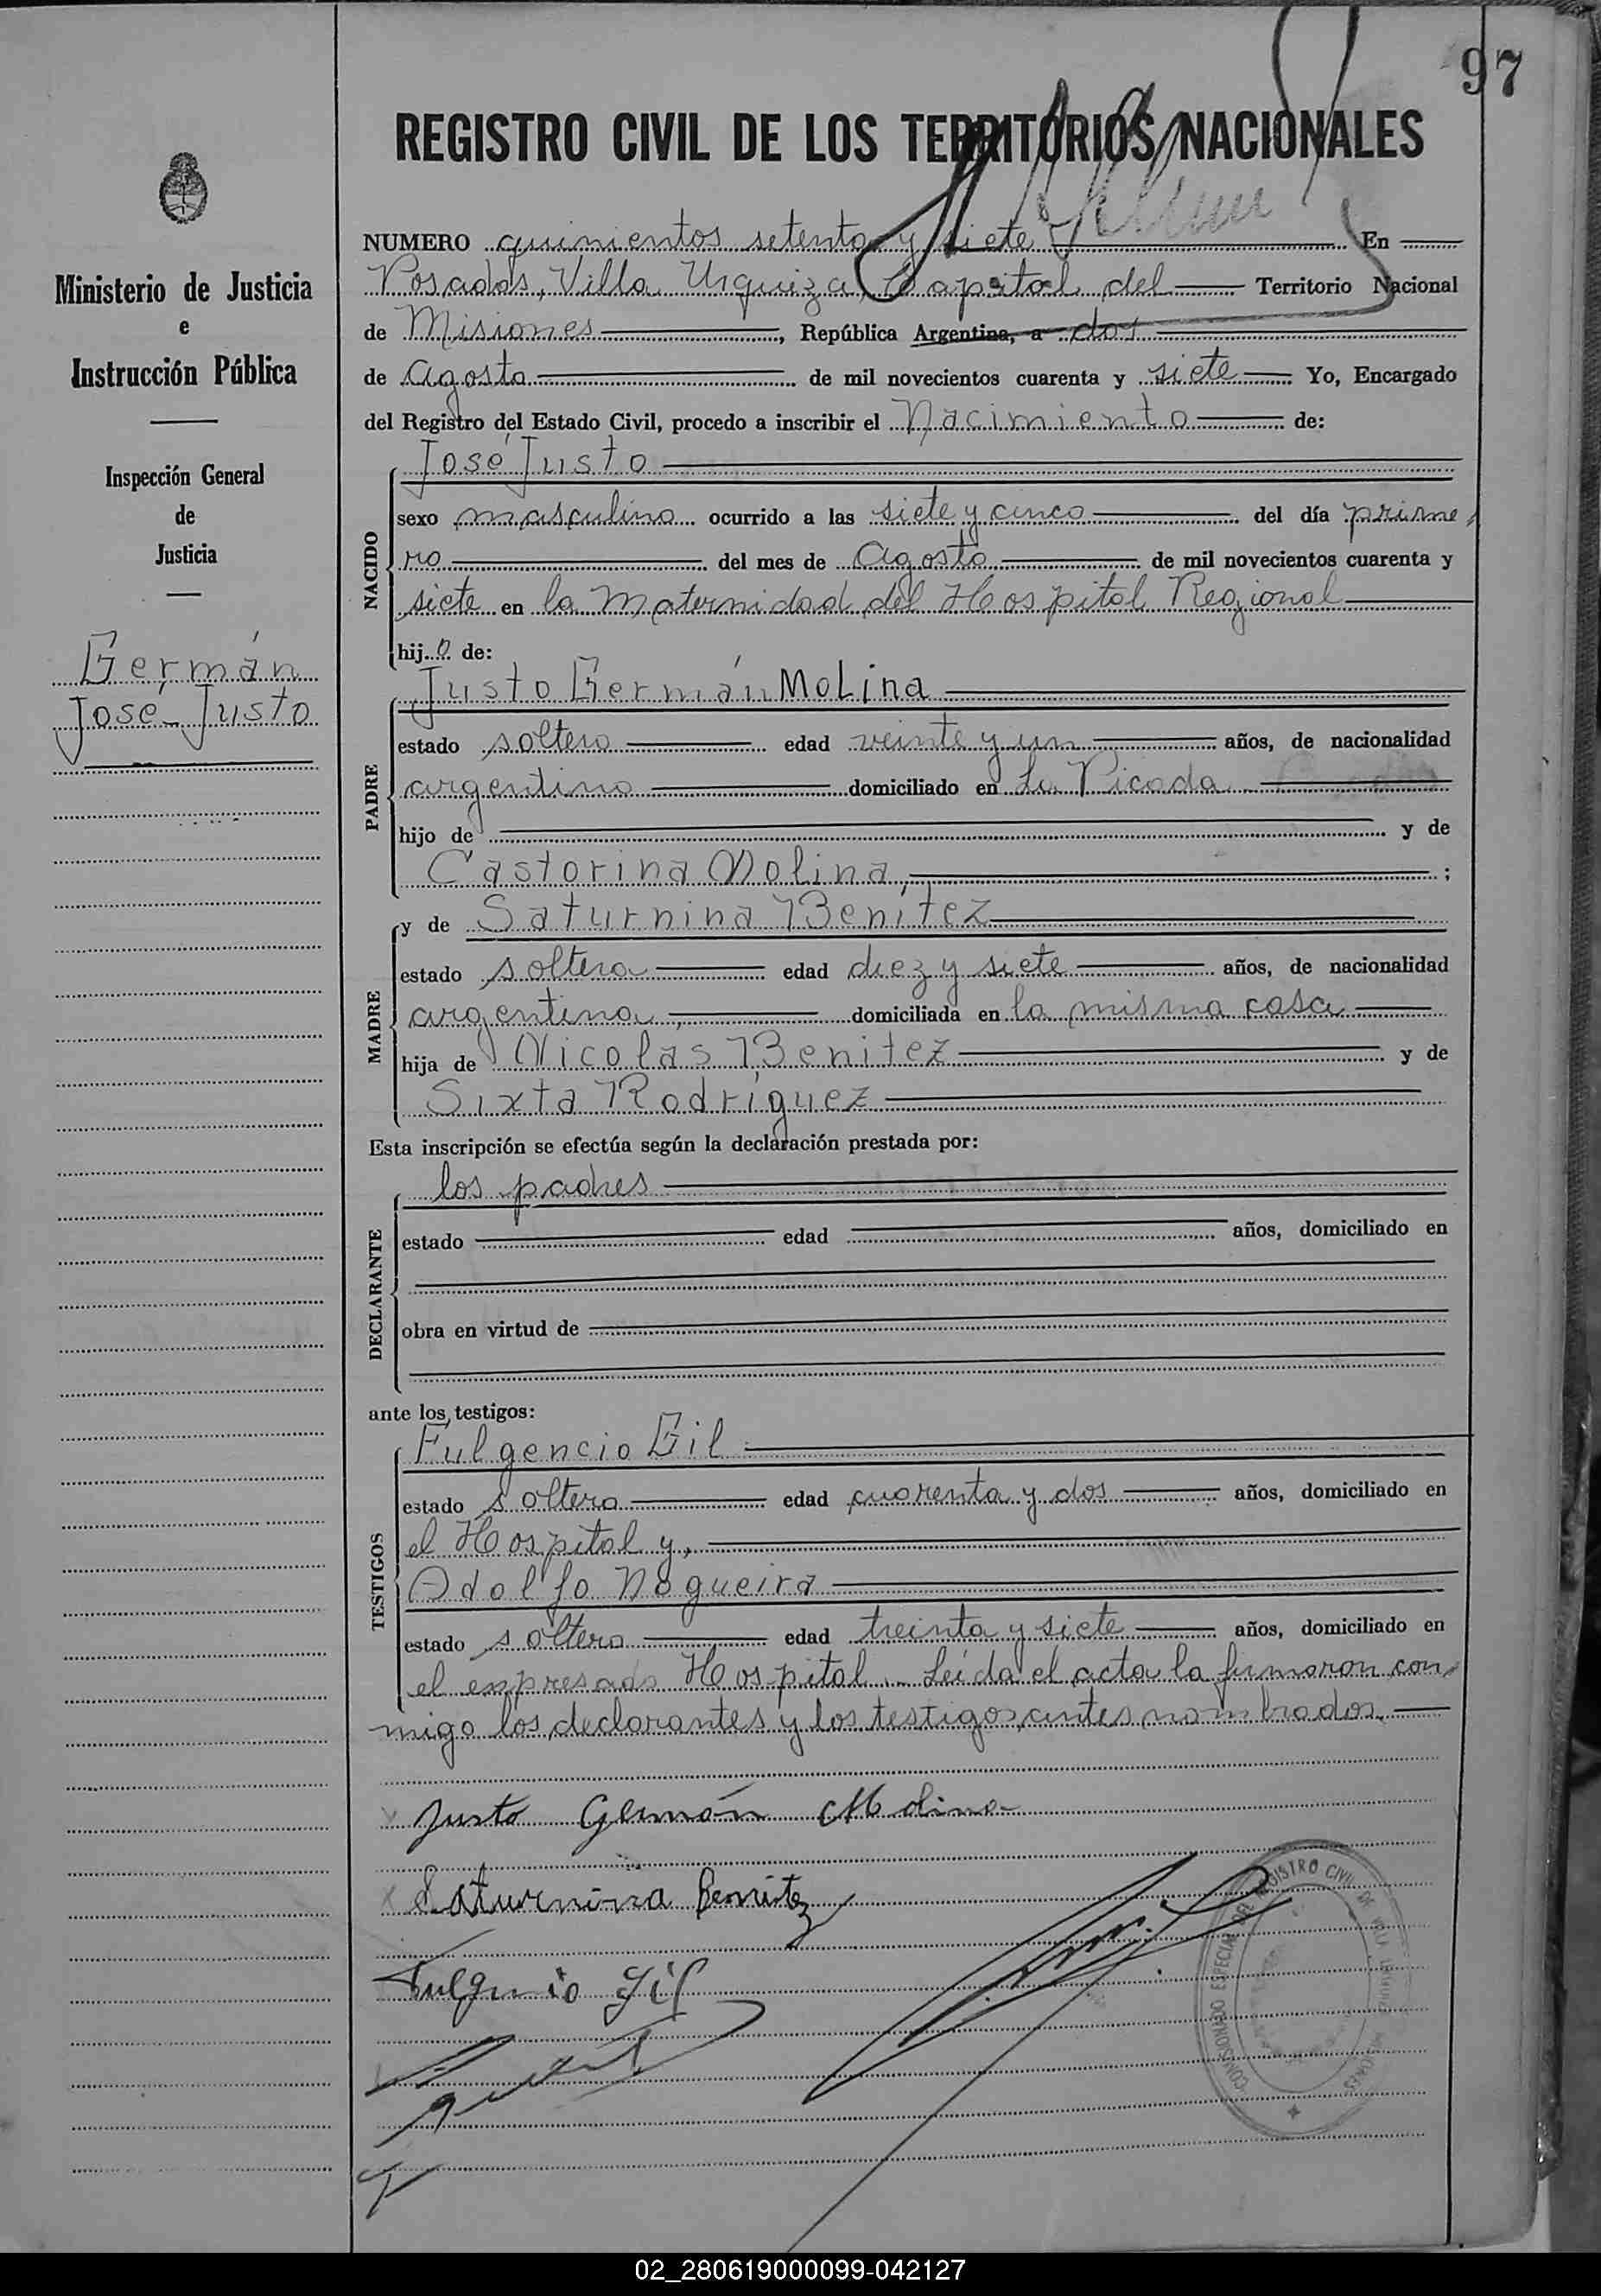 97
REGISTRO CIVIL DE LOS TERRITORIOS NACIONALES
NUMERO quinientos setenta y siete En
Posadas, Villa Urquiza, Capital del Territorio Nacional
de Misiones, República Argentina, a dos
de Agosto de mil novecientos cuarenta y siete Yo, Encargado
del Registro del Estado Civil, procedo a inscribir el Nacimiento de:
Ministerio de Justicia
e
Instrucción Pública
Inspección General
de
Justicia
Germán
José Justo
NACIDO
José Justo
sexo masculino ocurrido a las siete y cinco del día prime
ro del mes de Agosto de mil novecientos cuarenta y
siete en la Maternidad del Hospital Regional
hijo de:
PADRE
Justo Germán Molina
estado soltero edad veinte y un años, de nacionalidad
argentino domiciliado en La Picada
hijo de y de
Castorina Molina, ;
MADRE
y de Saturnina Benítez
estado soltera edad diez y siete años, de nacionalidad
argentina, domiciliada en la misma casa
hija de Nicolas Benitez y de
Sixta Rodríguez
Esta inscripción se efectúa según la declaración prestada por:
DECLARANTE
los padres
estado edad años, domiciliado en
obra en virtud de
ante los testigos:
TESTIGOS
Fulgencio Gil
estado soltero edad cuarenta y dos años, domiciliado en
el Hospital y,
Adolfo Nogueira
estado soltero edad treinta y siete años, domiciliado en
el expresado Hospital.- Leída el acta la firmaron con
migo los declarantes y los testigos antes nombrados.
Justo Germán Molina
Saturnina Benitez
Fulgencio Gil
COMISIONADO ESPECIAL DEL REGISTRO CIVIL DE VILLA
02_280619000099-042127